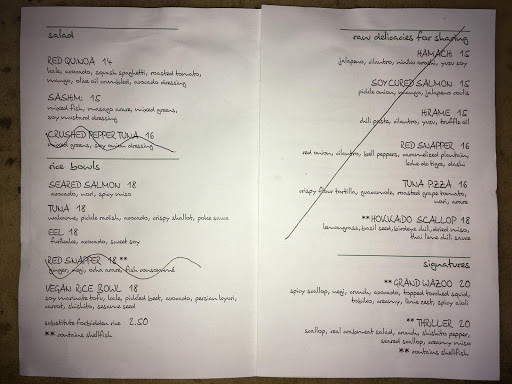 salad
RED QUINOA 14
kale, avocado, squash spaghetti, roasted tomato,
mango, olive oil crumbled, avocado dressing
SASHIMI 15
mixed fish, masago arare, mixed greens,
soy mustard dressing
CRUSHED PEPPER TUNA 16
mixed greens, soy onion dressing
rice bowls
SEARED SALMON 18
avocado, nori, spicy miso
TUNA 18
wakame, pickle radish, avocado, crispy shallot, poke sauce
EEL 18
furikake, avocado, sweet soy
RED SNAPPER 18 **
ginger, negi, ocha arare, fish consommé
VEGAN RICE BOWL 18
soy marinate tofu, kale, pickled beet, avocado, persian
carrot, shishito, sesame seed
substitute forbidden rice 2.50
** contains shellfish
raw delicacies for sharing
HAMACHI 15
jalapeno, cilantro, yuzu soy
SOY CURED SALMON 15
pickle onion, mango, jalapeno coulis
HIRAME 15
chili paste, cilantro, yuzu, truffle oil
RED SNAPPER 16
red onion, cilantro, bell peppers, caramelized plantain,
leche de tigre, dashi
TUNA PIZZA 16
crispy flour tortilla, guacamole, roasted grape tomato,
nori, arare
**HOKKAIDO SCALLOP 18
lemongrass, basil seed, birdseye chili, dried miso,
thai lime chili sauce
signatures
**GRAND WAZOO 20
spicy scallop, negi, crunch, avocado, topped torched squid,
tobiko, creamy, lime zest, spicy aioli
**THRILLER 20
scallop, real crabmeat salad, crunch, shishito pepper,
seared scallop, creamy miso
** contains shellfish